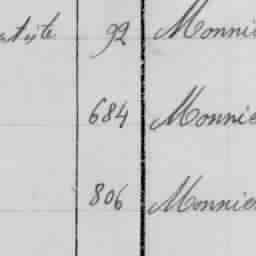 92 Monnie
684 Monnie
806 Monnie